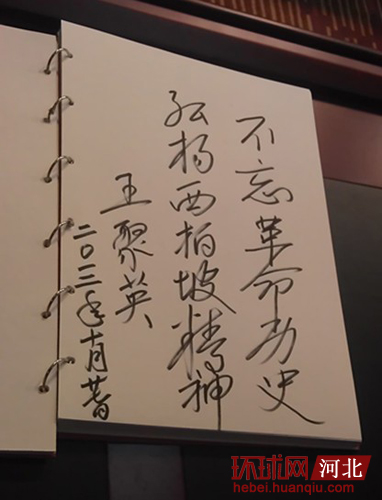 不忘革命历史
弘扬西柏坡精神
王聚英
二〇三年十月
环球网 河北
hebei.huanqiu.com